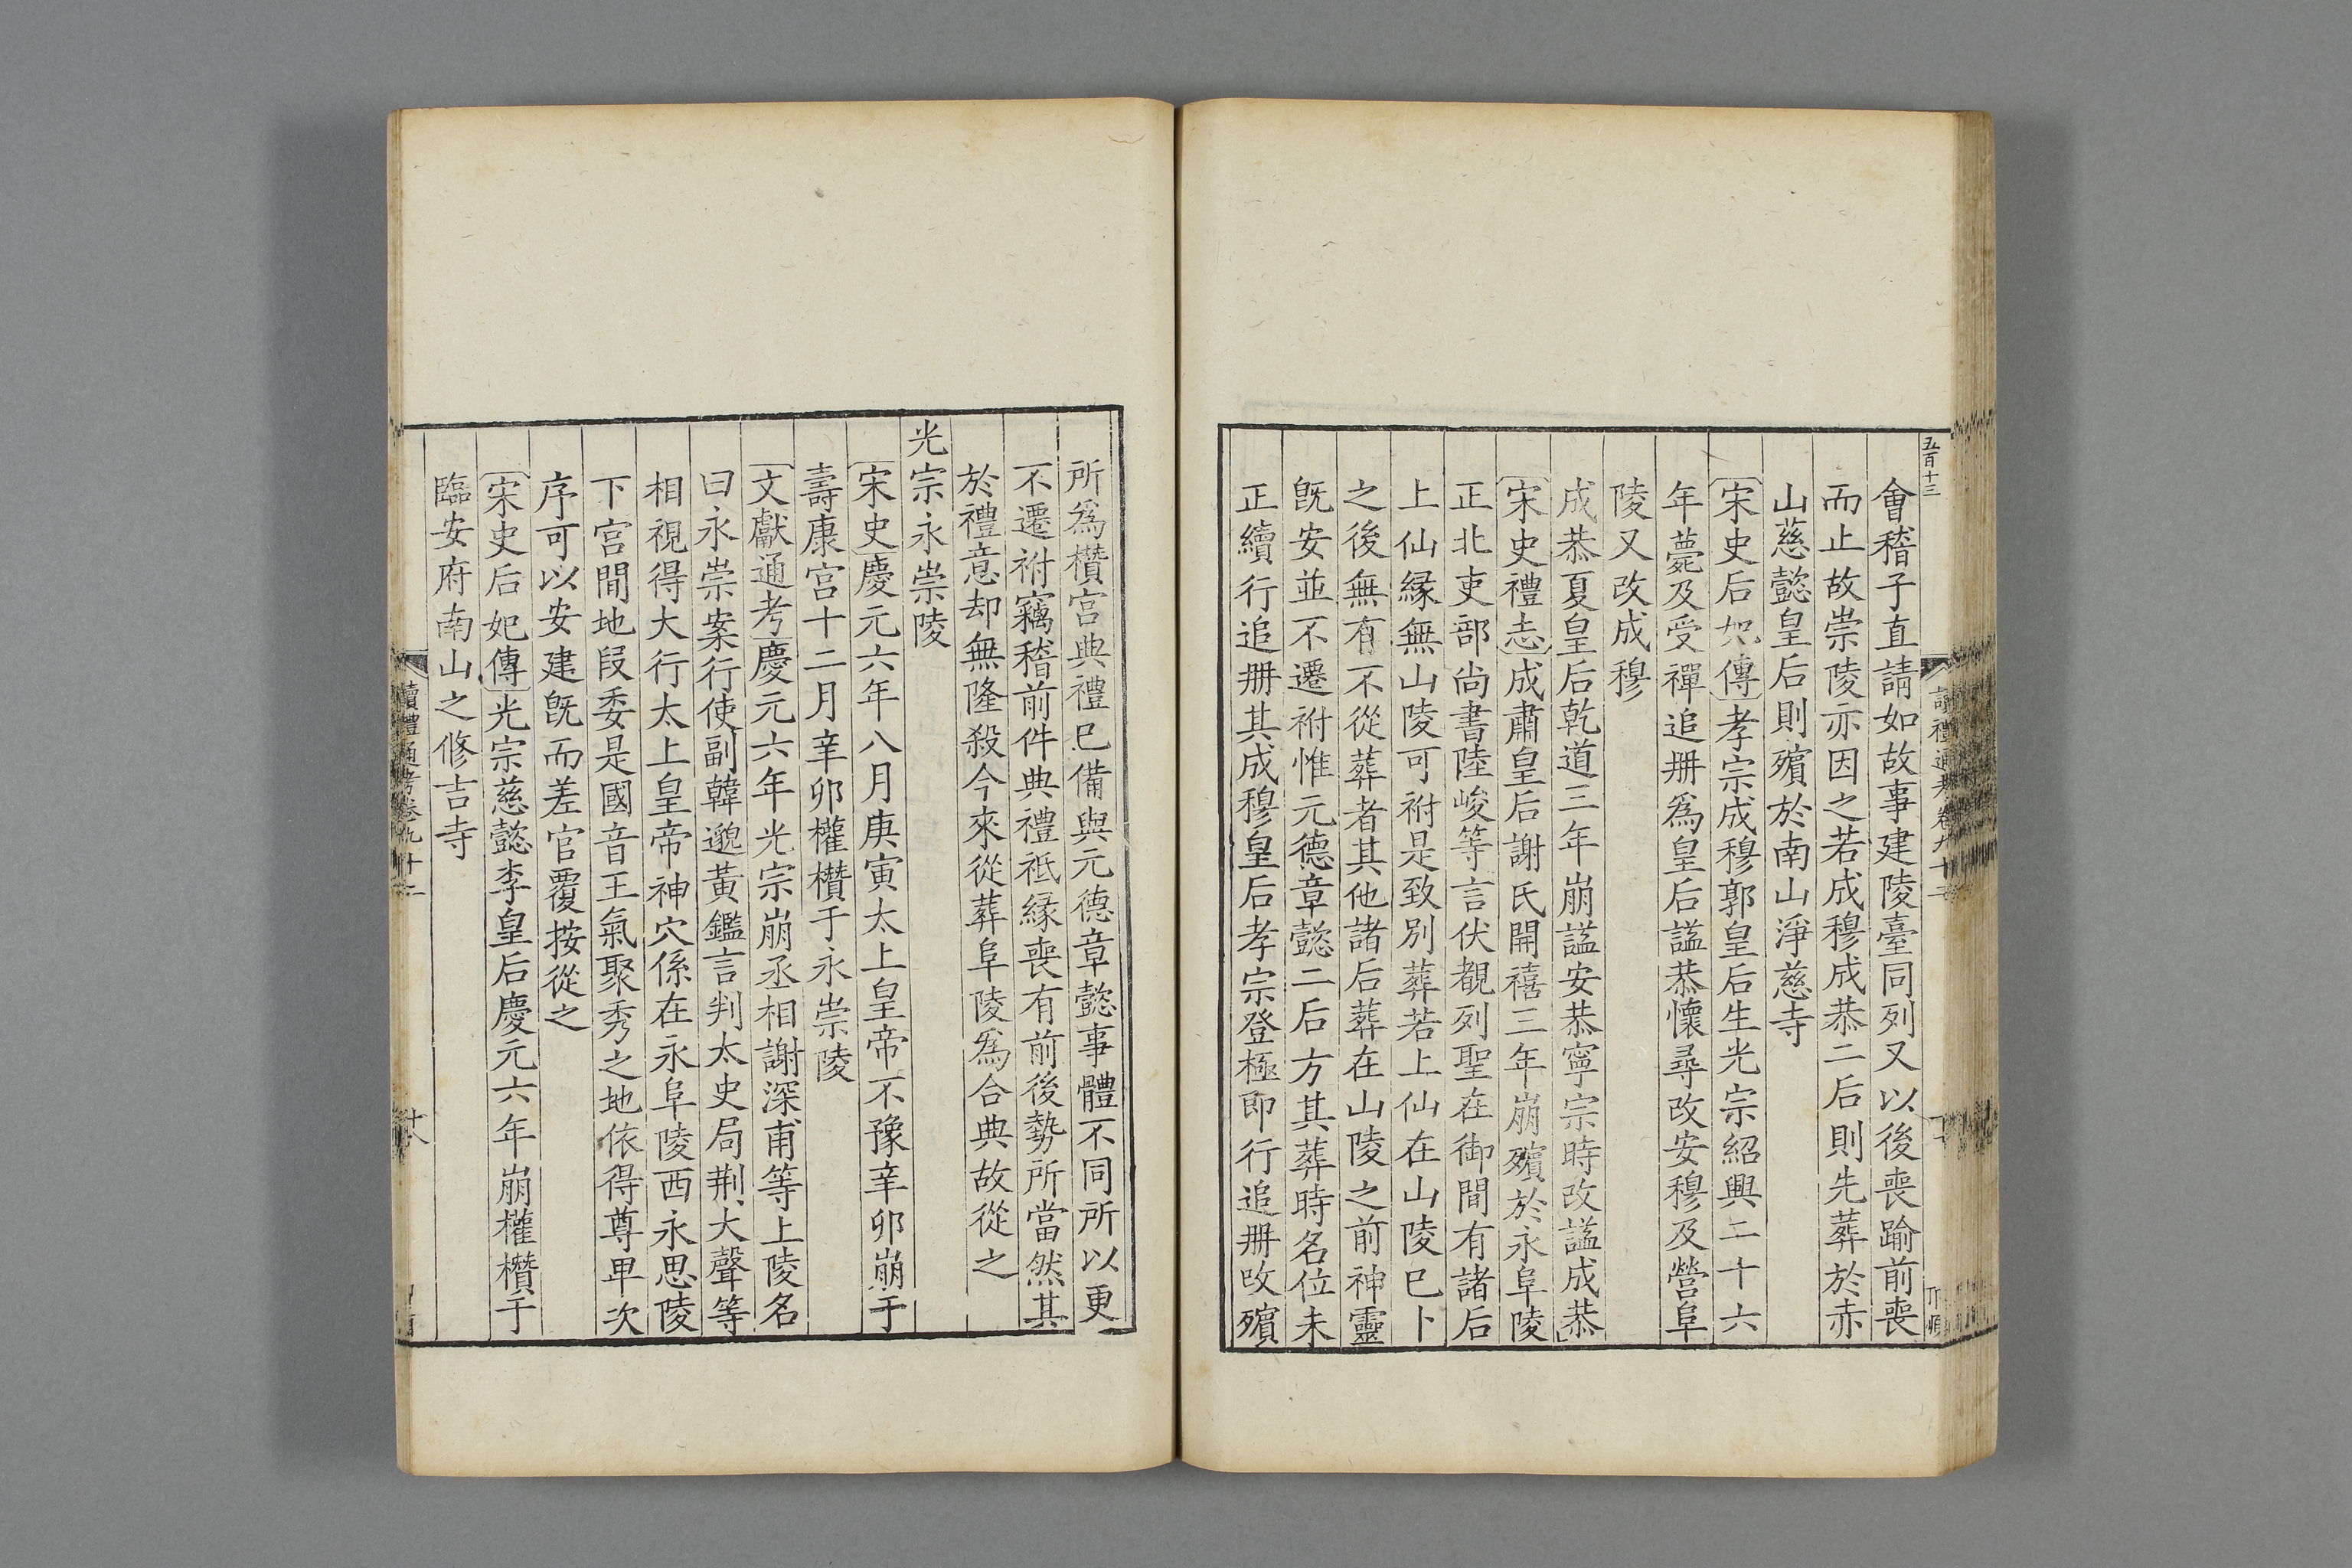 五百十三
會稽子直請如故事建陵臺同列又以後喪踰前喪
而止故崇陵亦因之若成穆成恭二后則先葬於赤
山慈懿皇后則殯於南山淨慈寺
宋史后妃傳孝宗成穆郭皇后生光宗紹興二十六
年薨及受禪追冊爲皇后謚恭懷尋改安穆及營阜
陵又改成穆
成恭夏皇后乾道三年崩謚安恭寧宗時改謚成恭
宋史禮志成肅皇后謝氏開禧三年崩殯於永阜陵
正北吏部尚書陸峻等言伏覩列聖在御間有諸后
上仙緣無山陵可祔是致別葬若上仙在山陵已卜
之後無有不從葬者其他諸后葬在山陵之前神靈
旣安並不遷祔惟元德章懿二后方其葬時名位未
正續行追冊其成穆皇后孝宗登極即行追冊攺殯
所爲欑宮典禮已備與元德章懿事體不同所以更
不遷祔竊稽前件典禮祗緣喪有前後勢所當然其
於禮意却無隆殺今來從葬阜陵爲合典故從之
光宗永崇陵
宋史慶元六年八月庚寅太上皇帝不豫辛卯崩于
壽康宮十二月辛卯權欑于永崇陵
文獻通考慶元六年光宗崩丞相謝深甫等上陵名
曰永崇案行使副韓邈黃鑑言判太史局荆大聲等
相視得大行太上皇帝神穴係在永阜陵西永思陵
下宮間地段委是國音王氣聚秀之地依得尊卑次
序可以安建旣而差官覆按從之
宋史后妃傳光宗慈懿李皇后慶元六年崩權欑于
臨安府南山之修吉寺
讀禮通考卷九十二
十八